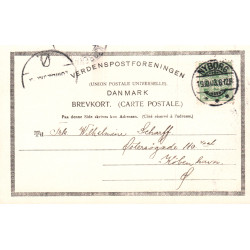 VERDENSPOSTFORENINGEN
(UNION POSTALE UNIVERSELLE)
DANMARK
BREVKORT. (CARTE POSTALE.)
Paa denne Side skrives kun Adressen. (Côté réservé à l'adresse.)
Frk. Wilhelmine Scharff
Østersøgade No
København
Ø
NYBORG